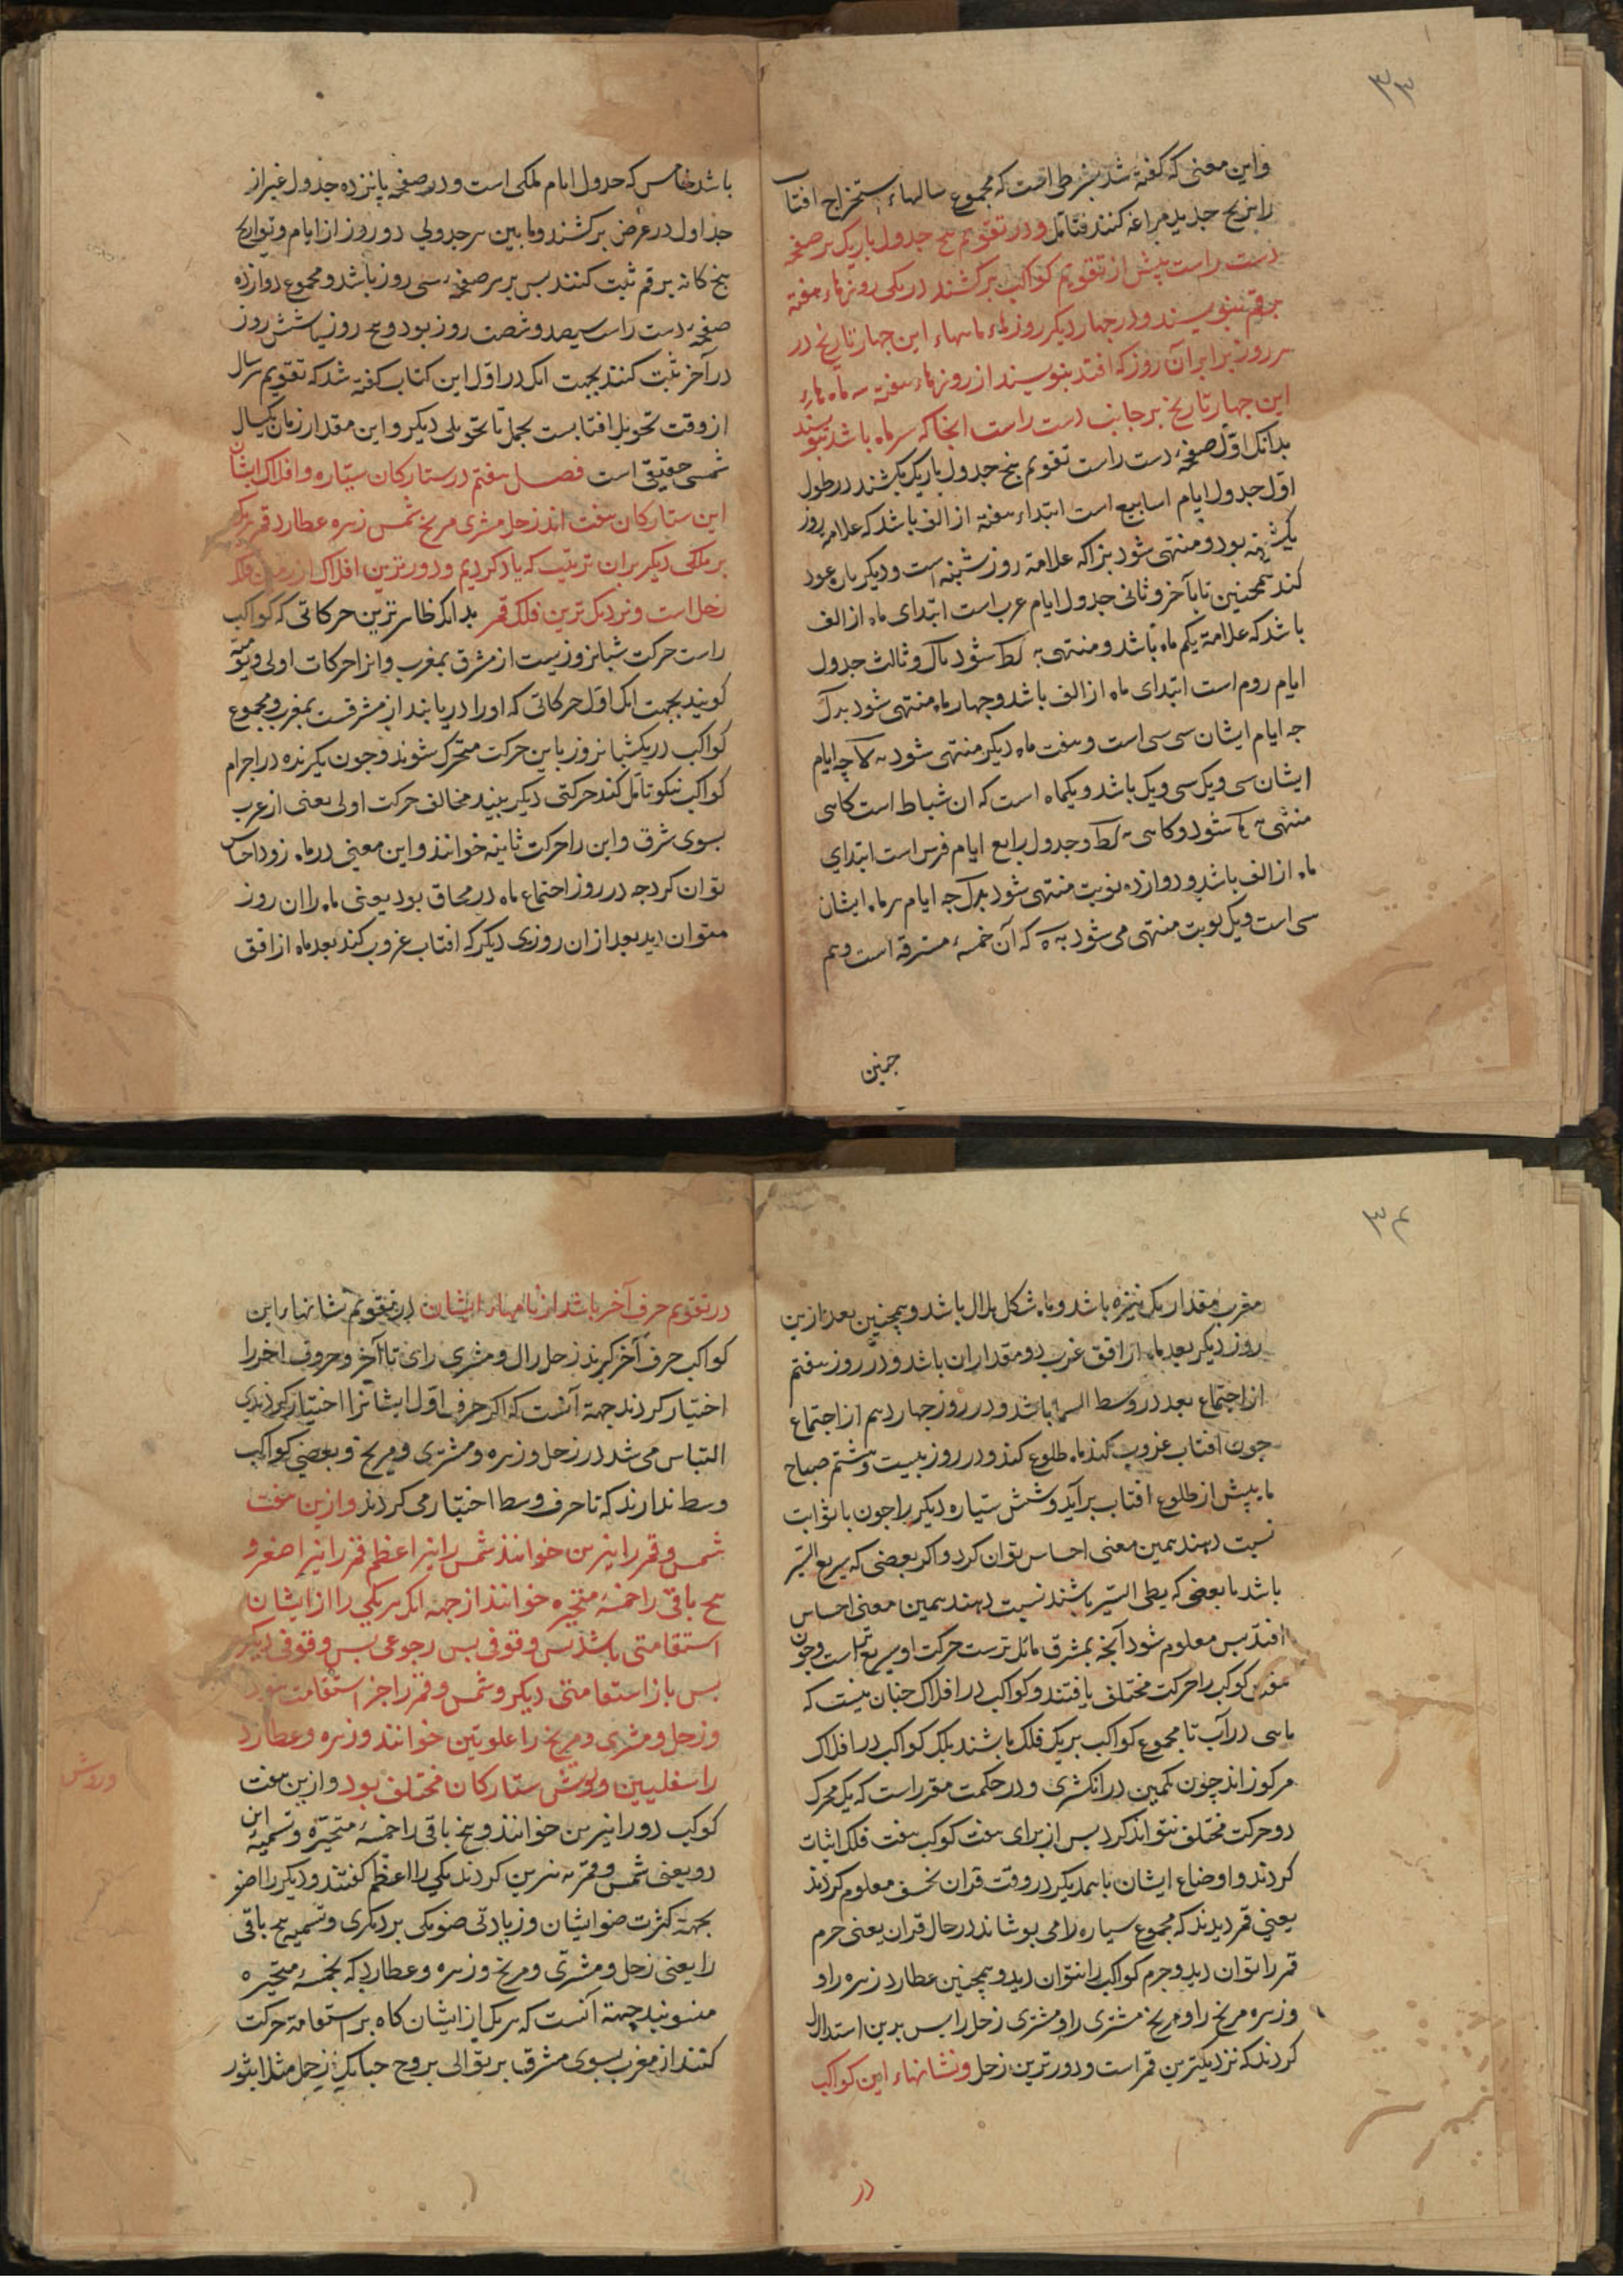 ٣٣
واین معنی که گفته شد بشرطی است که مجموع سالهاء استخراج افتاب
را بزیج جدید مراغه کنند فتامل و در تقویم پنج جدول باریک بر صفحه
دست راست پیش از تقویم کواکب برکشند در یکی روزهاء هفته
برقم بنویسند و در چهار دیگر روزهاء ماههاء این چهار تاریخ در
هر روز برابر آن روز که افتد بنویسند از روزهاء هفته سر ماه هاء
این چهار تاریخ بر جانب دست راست انجا که سر ماه باشد بنویسند
بدانک اول صفحهٔ دست راست تقویم پنج جدول باریک بکشند در طول
اول جدول ایام اسابیع است ابتداء هفته از الف باشد که علامة روز
یکشنبه بود و منتهی شود بزا که علامة روز شنبه است و دیگر بار عود
کند همچنین تا بآخر و ثانی جدول ایام عرب است ابتدای ماه از الف
باشد که علامة یکم ماه باشد و منتهی به کط شود یا ل و ثالث جدول
ایام روم است ابتدای ماه از الف باشد و چهار ماه منتهی شود به ل
جه ایام ایشان سی سی است و هفت ماه دیگر منتهی شود به لا چه ایام
ایشان سی و یک سی و یک باشد و یکماه است که ان شباط است کاهی
منتهی به کح شود و کاهی به کط و جدول رابع ایام فرس است ابتدای
ماه از الف باشد و دوازده نوبت منتهی شود به ل جه ایام هر ماه ایشان
سی است و یک نوبت منتهی می شود به ه که آن خمسهٔ مسترقه است و هم
جنین
باشد خامس که جدول ایام ملکی است و در صفحه پانزده جدول غیر از
جداول در عرض برکشند و مابین هر جدولی دو روز از ایام و تواریخ
پنج کانه برقم ثبت کنند بس بر هر صفحهٔ سی روز باشد و مجموع دوازده
صفحهٔ دست راست سیصد و شصت روز بود و پنج روز یا شش روز
در آخر ثبت کنند بجهت انک در اول این کتاب کفته شد که تقویم هر سال
از وقت تحویل افتابست بحمل تا تحویلی دیکر و این مقدار زمان یکسال
شمسی حقیقی است فصل هفتم در ستارکان سیّاره و افلاک ایشان
این ستارکان هفت اند زحل مشتری مریخ شمس زهره عطارد قمر هریک
بر فلکی دیکر بران ترتیب که یاد کردیم و دورترین افلاک از زمین فلک
زحل است و نزدیک ترین فلک قمر بدانک ظاهر ترین حرکاتی که کواکب
راست حرکت شبانروزیست از مشرق بمغرب و انرا حرکات اولی و یومیّه
کویند بجهت انک اول حرکاتی که او را دریابند از مشرقست بمغرب و مجموع
کواکب در یک شبانروز باین حرکت متحرک شوند و چون نکرنده در اجرام
کواکب نیکو تامل کند حرکتی دیکر بیند مخالف حرکت اولی یعنی از غرب
بسوی شرق و این را حرکت ثانیه خوانند و این معنی در ماه زود احساس
توان کرد جه در روز اجتماع ماه در محاق بود یعنی ماه را ان روز
نتوان دید بعد از ان روزی دیکر که افتاب غروب کند بعد ماه از افق
٣٤
مغرب مقدار یک نیزه باشد و ماه شکل هلال باشد و همچنین بعد ازین
روز دیکر بعد ماه از افق غرب دو مقدار ان باشد و در روز هفتم
از اجتماع بعد در وسط السما باشد و در روز چهاردهم از اجتماع
چون افتاب غروب کند ماه طلوع کند و در روز بیست و هشتم صباح
ماه پیش از طلوع افتاب برآید و شش سیّاره دیکر را چون با ثوابت
نسبت دهند همین معنی احساس توان کرد و اکر بعضی که سریع السّیر
باشد با بعضی که بطی السّیر باشند نسبت دهند همین معنی احساس
افتد بس معلوم شود آنچه بمشرق مائل ترست حرکت او سریع تر است و چون
هفت کوکب را حرکت مختلف یافتند و کواکب در افلاک جنان نیست که
ماهی در آب تا مجموع کواکب بر یک فلک باشند بلک کواکب در افلاک
مرکوز اند چون نکین در انکشتری و در حکمت مقرر است که یک محرک
دو حرکت مختلف نتواند کرد بس از برای هفت کوکب هفت فلک اثبات
کردند و اوضاع ایشان با همدیکر در وقت قران بخسف معلوم کردند
یعنی قمر دیدند که مجموع سیاره را می بوشاند در حال قران یعنی جرم
قمر را توان دید و جرم کواکب را نتوان دید و همچنین عطارد زهره را و
زهره مریخ را و مریخ مشتری را و مشتری زحل را بس بدین استدلال
کردند که نزدیکترین قمر است و دورترین زحل و نشانهاء این کواکب
در
در تقویم حرف آخر باشد از نامهاء ایشان در تقویم نشانهاء این
کواکب حرف آخر کیرند زحل را ل و مشتری را ی تا آخر و حروف اخر را
اختیار کردند جهة آنست که اکر حرف اول ایشانرا اختیار کردندی
التباس می شد در زحل و زهره و مشتری و مریخ و بعضی کواکب
وسط ندارند که تا حرف وسط اختیار می کردند و ازین هفت
شمس و قمر را نیرین خوانند شمس را نیر اعظم قمر را نیر اصغر و
پنج باقی را خمسهٔ متحیره خوانند از جهة انک هر یکی را از ایشان
استقامتی باشد بس وقوفی بس رجوعی بس وقوفی دیکر
بس باز استقامتی دیکر و شمس و قمر را جز استقامت نبود
و زحل و مشتری و مریخ را علویین خوانند و زهره و عطارد
را سفلیین و روش ستارکان مختلف بود و ازین هفت
وروش
کوکب دو را نیرین خوانند و پنج باقی را خمسهٔ متحیّره و تسمیهٔ این
دو یعنی شمس و قمر به نیرین کردند یکی را اعظم کفتند و دیکر را اصغر
بجهة کثرت ضو ایشان و زیادتی ضو یکی بر دیکری و تسمیه پنج باقی
را یعنی زحل و مشتری و مریخ و زهره و عطارد که بخمسهٔ متحیره
منسوبند جهة آنست که هر یک از ایشان کاه بر استقامة حرکت
کنند از مغرب بسوی مشرق بر توالی بروج جنانک زحل مثلا از ثور